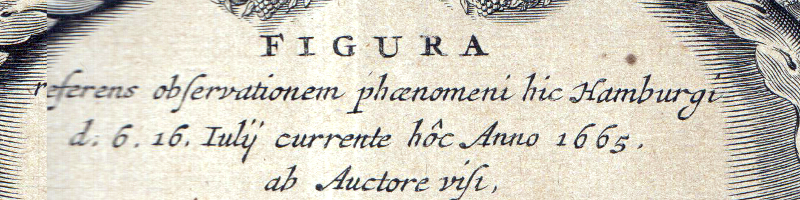 FIGURA
referens obſervationem phænomeni hic Hamburgi
d. 6. 16. Iulij currente hôc Anno 1665.
ab Auctore viſi,